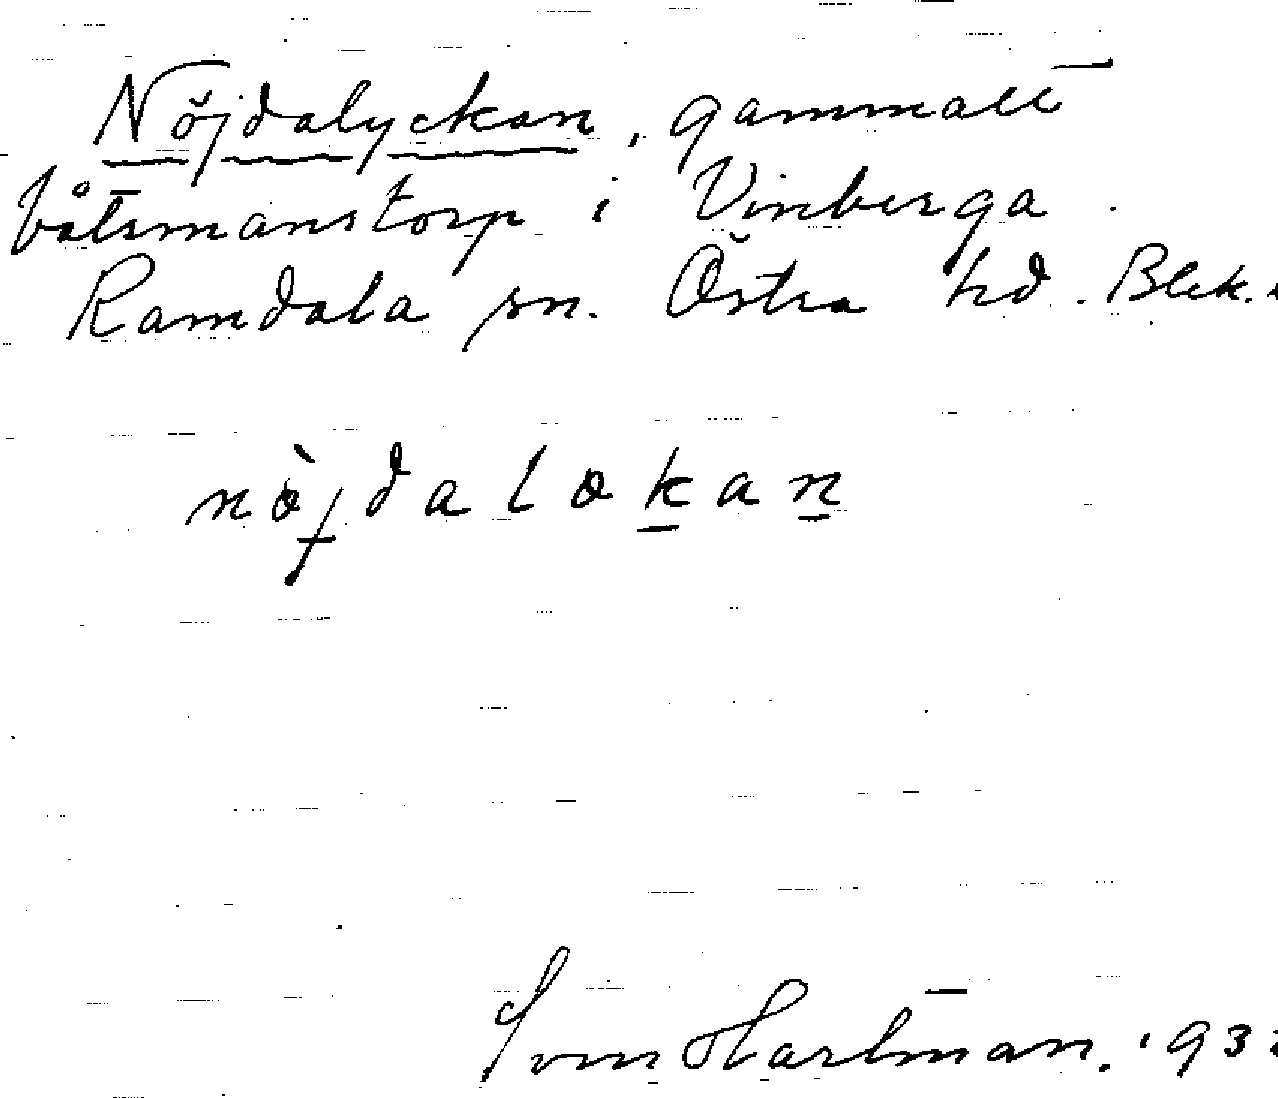 Nöjdalyckan, gammalt
båtsmanstorp i Vinberga.
Ramdala sn. Östra hd. Blek.
nòjdalokan
Sven Hartman. 193